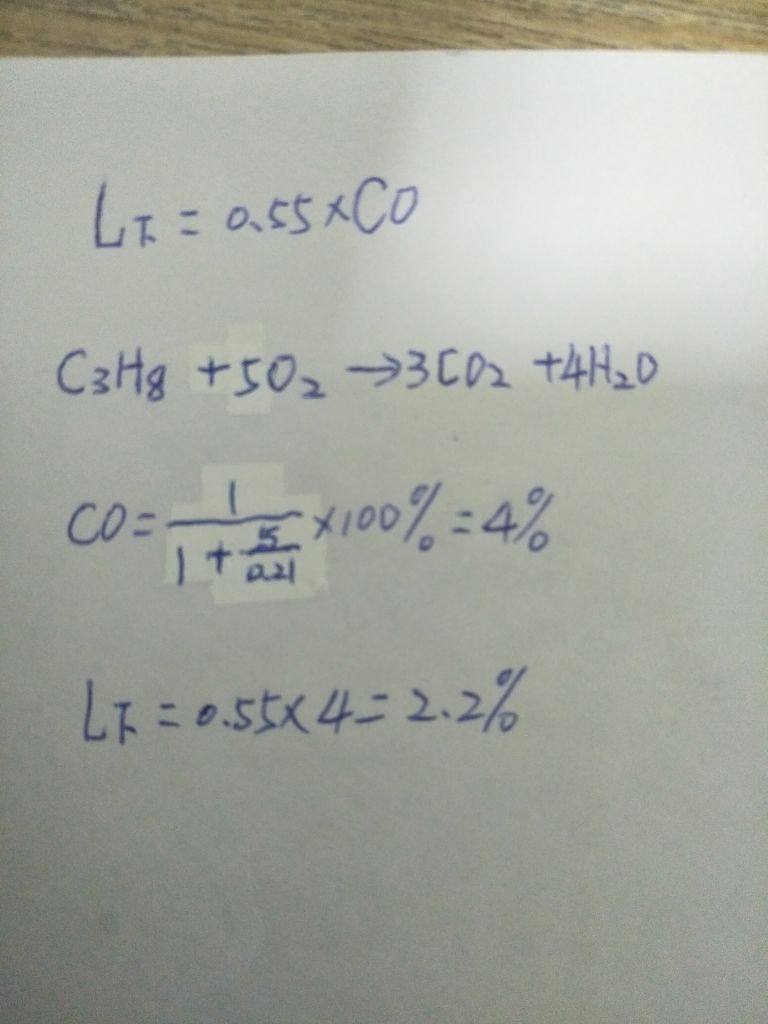 L下 = 0.55×CO
C3H8 +5O2 →3CO2 +4H2O
CO= 1/(1+5/0.21) ×100%=4%
L下 = 0.55×4=2.2%